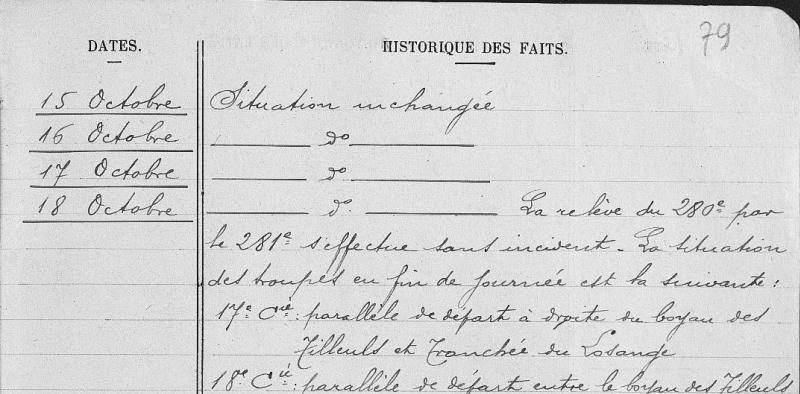 79
DATES. HISTORIQUE DES FAITS.
15 Octobre Situation inchangée
16 Octobre do
17 Octobre do
18 Octobre d. La relève du 280e par
le 281e s'effectue sans incident. La situation
des troupes en fin de journée est la suivante:
17e Cie: parallèle de départ à droite du boyau des
Tilleuls et Tranchée du Losange
18e Cie: parallèle de départ entre le boyau des Tilleuls